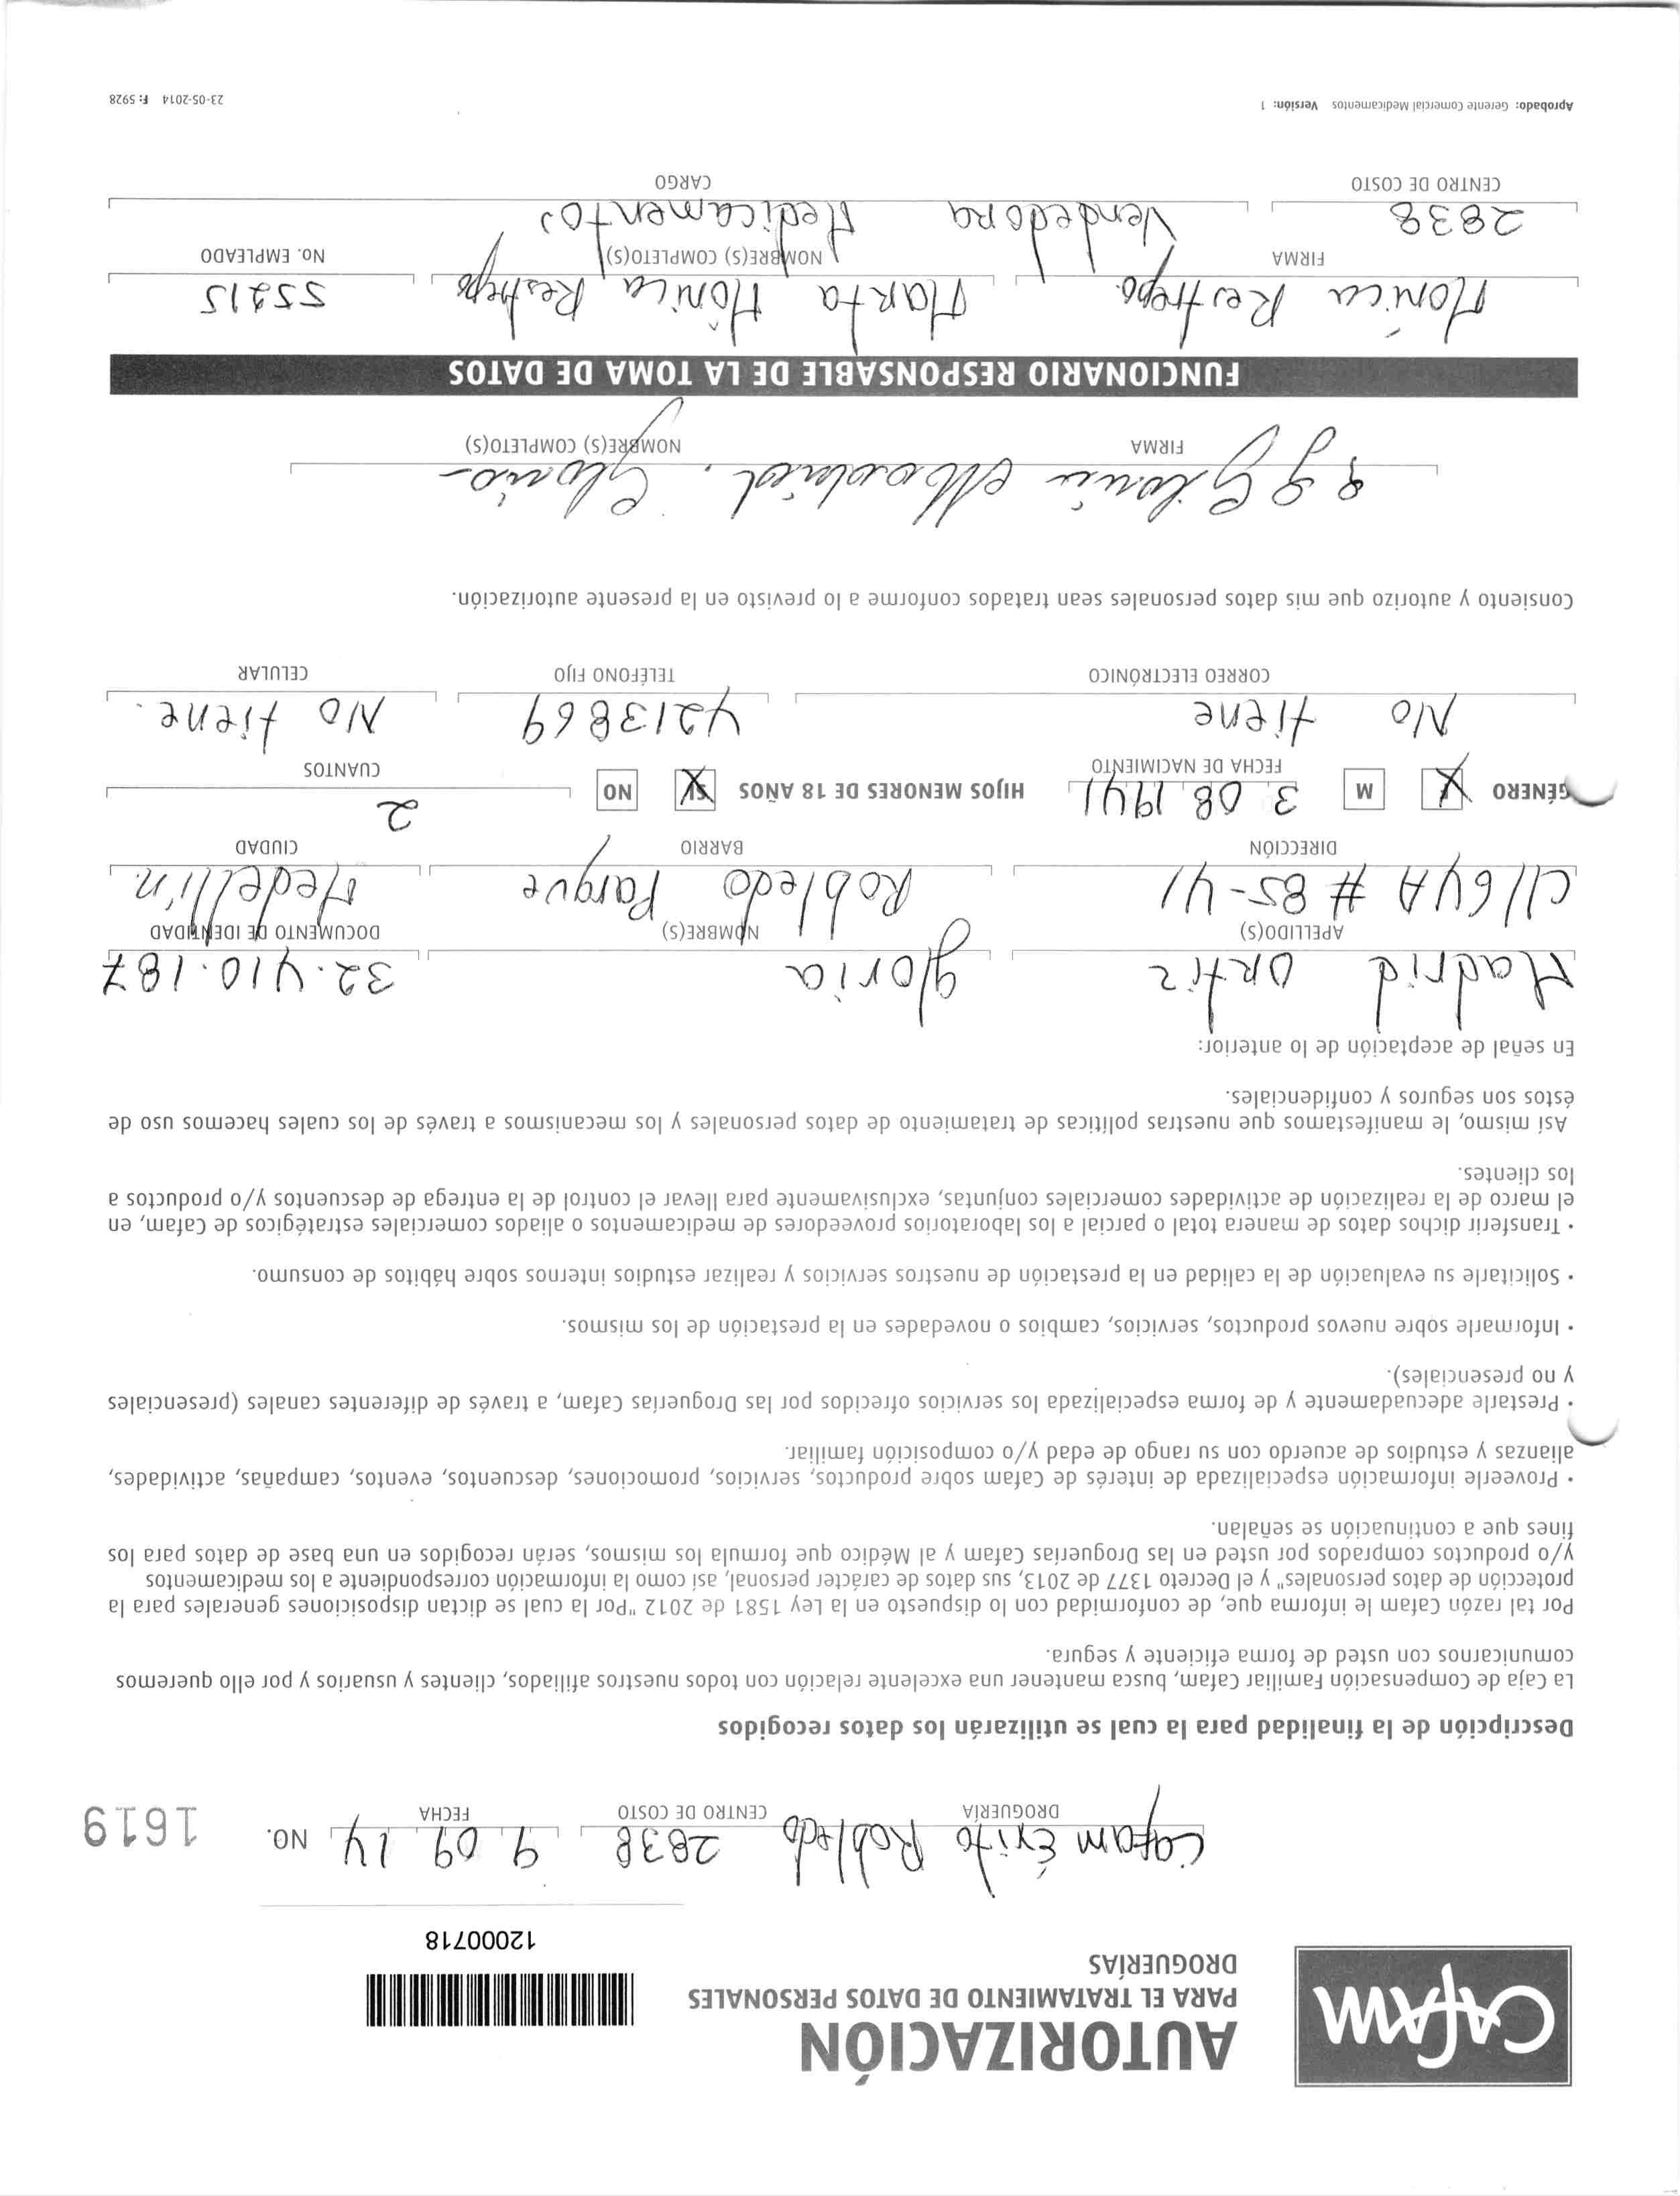 Cafam
AUTORIZACIÓN
PARA EL TRATAMIENTO DE DATOS PERSONALES
DROGUERÍAS
12000718
Cafam Éxito Robledo 2838 9 09 14 NO. 1619
DROGUERÍA CENTRO DE COSTO FECHA
Descripción de la finalidad para la cual se utilizarán los datos recogidos
La Caja de Compensación Familiar Cafam, busca mantener una excelente relación con todos nuestros afiliados, clientes y usuarios y por ello queremos
comunicarnos con usted de forma eficiente y segura.
Por tal razón Cafam le informa que, de conformidad con lo dispuesto en la Ley 1581 de 2012 "Por la cual se dictan disposiciones generales para la
protección de datos personales" y el Decreto 1377 de 2013, sus datos de carácter personal, así como la información correspondiente a los medicamentos
y/o productos comprados por usted en las Droguerías Cafam y al Médico que formula los mismos, serán recogidos en una base de datos para los
fines que a continuación se señalan.
• Proveerle información especializada de interés de Cafam sobre productos, servicios, promociones, descuentos, eventos, campañas, actividades,
alianzas y estudios de acuerdo con su rango de edad y/o composición familiar.
• Prestarle adecuadamente y de forma especializada los servicios ofrecidos por las Droguerías Cafam, a través de diferentes canales (presenciales
y no presenciales).
• Informarle sobre nuevos productos, servicios, cambios o novedades en la prestación de los mismos.
• Solicitarle su evaluación de la calidad en la prestación de nuestros servicios y realizar estudios internos sobre hábitos de consumo.
• Transferir dichos datos de manera total o parcial a los laboratorios proveedores de medicamentos o aliados comerciales estratégicos de Cafam, en
el marco de la realización de actividades comerciales conjuntas, exclusivamente para llevar el control de la entrega de descuentos y/o productos a
los clientes.
Así mismo, le manifestamos que nuestras políticas de tratamiento de datos personales y los mecanismos a través de los cuales hacemos uso de
éstos son seguros y confidenciales.
En señal de aceptación de lo anterior:
Madrid Ortiz gloria 32.410.187
APELLIDO(S) NOMBRE(S) DOCUMENTO DE IDENTIDAD
Cll 64A # 85-41 Robledo Parque Medellín
DIRECCIÓN BARRIO CIUDAD
GÉNERO F X M 3 08 1941 HIJOS MENORES DE 18 AÑOS SI X NO 2
FECHA DE NACIMIENTO CUANTOS
No tiene 4213869 No tiene.
CORREO ELECTRÓNICO TELÉFONO FIJO CELULAR
Consiento y autorizo que mis datos personales sean tratados conforme a lo previsto en la presente autorización.
Gloria Madrid. Gloria
FIRMA NOMBRE(S) COMPLETO(S)
FUNCIONARIO RESPONSABLE DE LA TOMA DE DATOS
Mónica Restrepo. Marta Mónica Restrepo 55215
FIRMA NOMBRE(S) COMPLETO(S) No. EMPLEADO
2838 Vendedora Medicamentos
CENTRO DE COSTO CARGO
Aprobado: Gerente Comercial Medicamentos Versión: 1 23-05-2014 F: 5928